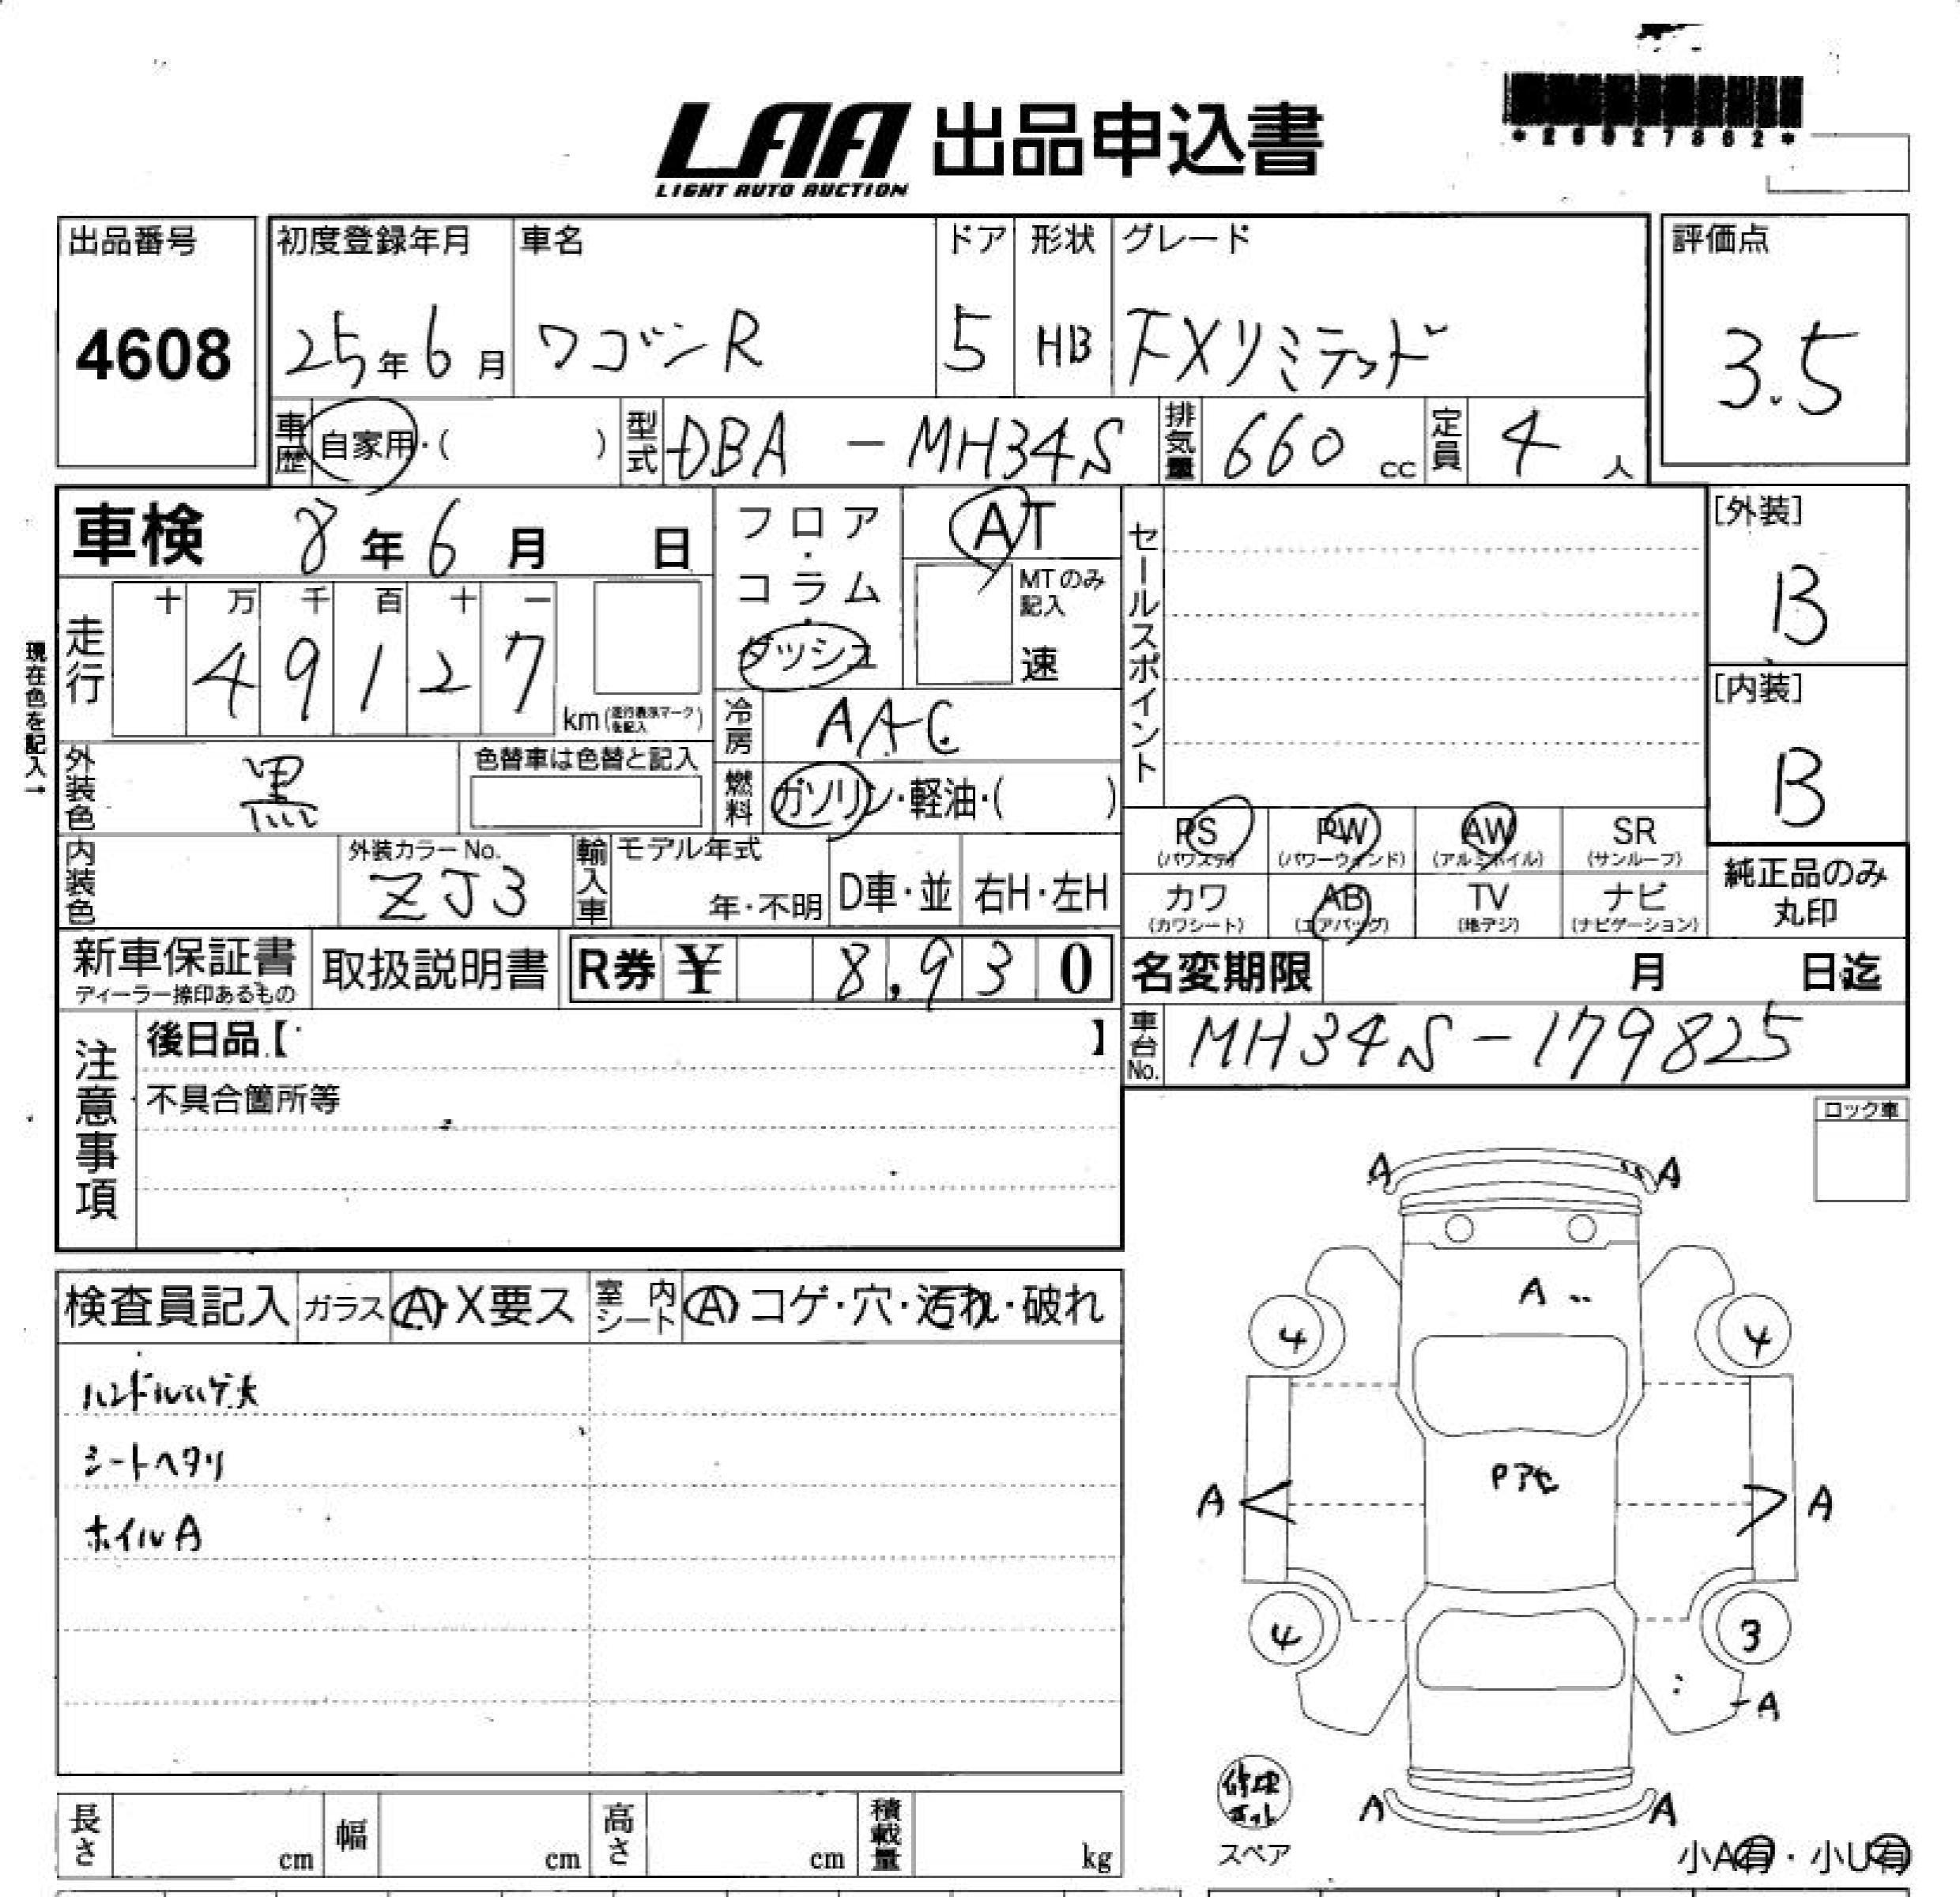 LAA 出品申込書
LIGHT AUTO AUCTION
*26027862*
出品番号
4608
初度登録年月
25年6月
車名
ワゴンR
ドア
5
形状
HB
グレード
FXリミテッド
評価点
3.5
車歴 自家用・( )
型式 DBA - MH34S
排気量 660 cc
定員 4 人
車検 8年6月 日
フロア・コラム・ダッシュ
AT
MTのみ記入
速
セールスポイント
[外装]
B
[内装]
B
現在色を記入↑
走行
十 万 千 百 十 一
4 9 1 2 7
km (走行表示マークを記入)
冷房 AAC
外装色 黒
色替車は色替と記入
燃料 ガソリン・軽油・( )
内装色
外装カラーNo.
ZJ3
輸入車
モデル年式
年・不明
D車・並
右H・左H
PS (パワステ)
PW (パワーウィンド)
AW (アルミホイル)
SR (サンルーフ)
カワ (カワシート)
AB (エアバッグ)
TV (地デジ)
ナビ (ナビゲーション)
純正品のみ
丸印
新車保証書
ディーラー捺印あるもの
取扱説明書
R券 ¥ 8,930
名変期限 月 日迄
車台No. MH34S-179825
注意事項
後日品【 】
不具合箇所等
ロック車
検査員記入
ガラス A・X要ス
室内シート A コゲ・穴・汚れ・破れ
ハンドルハゲ大
シートヘタリ
ホイルA
A A
A
4 4
Pアセ
A A
4 3
A
A A
修理キット
スペア
小A有・小U有
長さ cm
幅 cm
高さ cm
積載量 kg